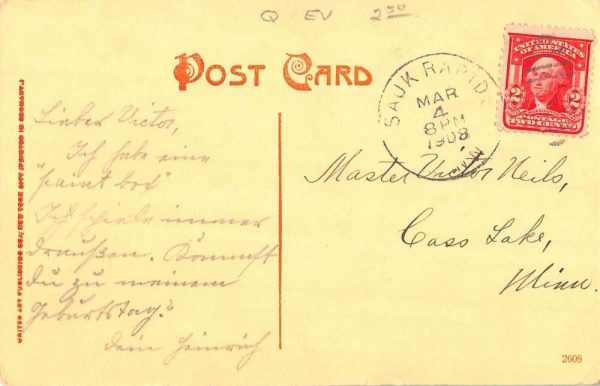 Q EV 2 50
POST CARD
SAUK RAPIDS
MAR
4
8 PM
1908
UNITED STATES
OF AMERICA
2 2
POSTAGE
TWO CENTS
Lieber Victor,
Ich habe eine
"paint box"
Ich spiele immer
draußen. Kommst
du zu meinem
Geburtstag?
dein Heinrich
Master Victor Neils,
Cass Lake,
Minn.
2608